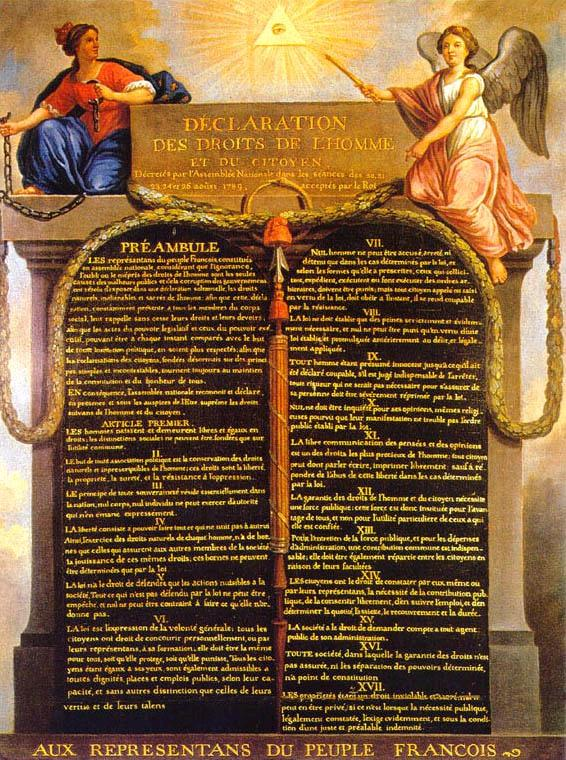 DÉCLARATION
DES DROITS DE L'HOMME
ET DU CITOYEN,
Décrétés par l'Assemblée Nationale dans les séances des 20, 21
23, 24 et 26 août 1789, acceptés par le Roi
PRÉAMBULE
LES représentans du peuple François, constitués
en assemblée nationale, considérant que l'ignorance,
l'oubli ou le mépris des droits de l'homme sont les seules
causes des malheurs publics et de la corruption des gouvernemens
ont résolu d'exposer dans une déclaration solemnelle, les droits
naturels, inaliénables et sacrés de l'homme; afin que cette décla
ration, constamment présente à tous les membres du corps
social, leur rappelle sans cesse leurs droits et leurs devoirs;
afin que les actes du pouvoir législatif et ceux du pouvoir exé
cutif, pouvant être à chaque instant comparés avec le but
de toute institution politique, en soient plus respectés; afin que
les réclamations des citoyens, fondées désormais sur des princi
pes simples et incontestables, tournent toujours au maintien
de la constitution et du bonheur de tous.
EN conséquence, l'assemblée nationale reconnoit et déclare,
en présence et sous les auspices de l'Etre suprême les droits
suivans de l'homme et du citoyen.
ARTICLE PREMIER.
LES hommes naissent et demeurent libres et égaux en
droits; les distinctions sociales ne peuvent être fondées que sur
l'utilité commune.
II.
LE but de toute association politique est la conservation des droits
naturels et imprescriptibles de l'homme; ces droits sont la liberté,
la propriété, la sureté, et la résistance à l'oppression.
III.
LE principe de toute souveraineté réside essentiellement dans
la nation, nul corps, nul individu ne peut exercer d'autorité
qui n'en émane expressément.
IV.
LA liberté consiste à pouvoir faire tout ce qui ne nuit pas à autrui
Ainsi, l'exercice des droits naturels de chaque homme, n'a de bor
nes que celles qui assurent aux autres membres de la société
la jouissance de ces mêmes droits; ces bornes ne peuvent
être déterminées que par la loi
V.
LA loi n'a le droit de défendre que les actions nuisibles à la
société. Tout ce qui n'est pas défendu par la loi ne peut être
empêché, et nul ne peut être contraint à faire ce qu'elle n'or
donne pas.
VI.
LA loi est l'expression de la volonté générale; tous les
citoyens ont droit de concourir personnellement, ou par
leurs représentans, à sa formation; elle doit être la même
pour tous, soit qu'elle protege, soit qu'elle punisse. Tous les citoy
ens étant égaux à ses yeux, sont également admissibles à
toutes dignités, places et emplois publics, selon leur ca
pacité, et sans autres distinction que celles de leurs
vertus et de leurs talens
VII.
NUL homme ne peut être accusé, arreté ni
détenu que dans les cas déterminés par la loi, et
selon les formes qu'elle a prescrites, ceux qui sollici
tent, expédient, exécutent ou font exécuter des ordres ar
bitraires, doivent être punis; mais tout citoyen appelé ou saisi
en vertu de la loi, doit obéir à l'instant, il se rend coupable
par la résistance.
VIII.
LA loi ne doit établir que des peines strictement et évidem
ment nécessaire, et nul ne peut être puni qu'en vertu d'une
loi établie et promulguée antérieurement au délit, et légale
ment appliquée.
IX.
TOUT homme étant présumé innocent jusqu'à ce qu'il ait
été déclaré coupable, s'il est jugé indispensable de l'arrêter,
toute rigueur qui ne serait pas nécessaire pour s'assurer de
sa personne doit être sévèrement réprimée par la loi.
X.
NUL ne doit être inquiété pour ses opinions, mêmes religi
euses pourvu que leur manifestation ne trouble pas l'ordre
public établi par la loi.
XI.
LA libre communication des pensées et des opinions
est un des droits les plus precieux de l'homme; tout citoyen
peut donc parler écrire, imprimer librement: sauf à ré
pondre de l'abus de cette liberté dans les cas déterminés
par la loi.
XII.
LA garantie des droits de l'homme et du citoyen nécessite
une force publique; cette force est donc instituée pour l'avan
tage de tous, et non pour l'utilité particuliere de ceux a qui
elle est confiée.
XIII.
Pour l'entretien de la force publique, et pour les dépenses
d'administration, une contribution commune est indispen
sable; elle doit être également répartie entre les citoyens en
raison de leurs facultées
XIV.
LES citoyens ont le droit de constater par eux même ou
par leurs représentans, la nécessité de la contribution pub
lique, de la consentir librement, d'en suivre l'emploi, et d'en
déterminer la quotité, l'assiette, le recouvrement et la durée.
XV.
LA société a le droit de demander compte a tout agent
public de son administration.
XVI.
TOUTE société, dans laquelle la garantie des droits n'est
pas assurée, ni les séparation des pouvoirs déterminée,
n'a point de constitution
XVII.
LES propriétés étant un droit inviolable et sacré, nul ne
peut en être privé, si ce n'est lorsque la nécessité publique,
légalement constatée, l'exige evidemment, et sous la condi
tion d'une juste et préalable indemnité.
AUX REPRESENTANS DU PEUPLE FRANCOIS